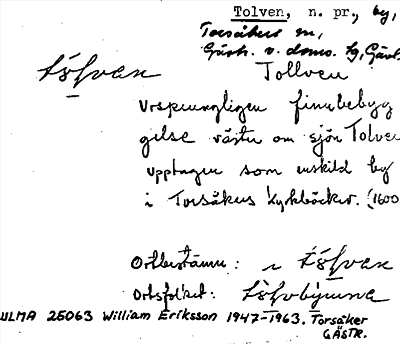 Tolven, n. pr., by,
Torsåkers sn,
Gästr. v. doms. tg, Gävl.
Tollven
Ursprungligen finnbebyg
gelse väster om sjön Tolven
upptagen som enskild by
i Torsåkers kyrkböcker. (1600
Ortbestämn: i
Ortsfolket:
ULMA 25063 William Eriksson 1947-1963. Torsåker
GÄSTR.